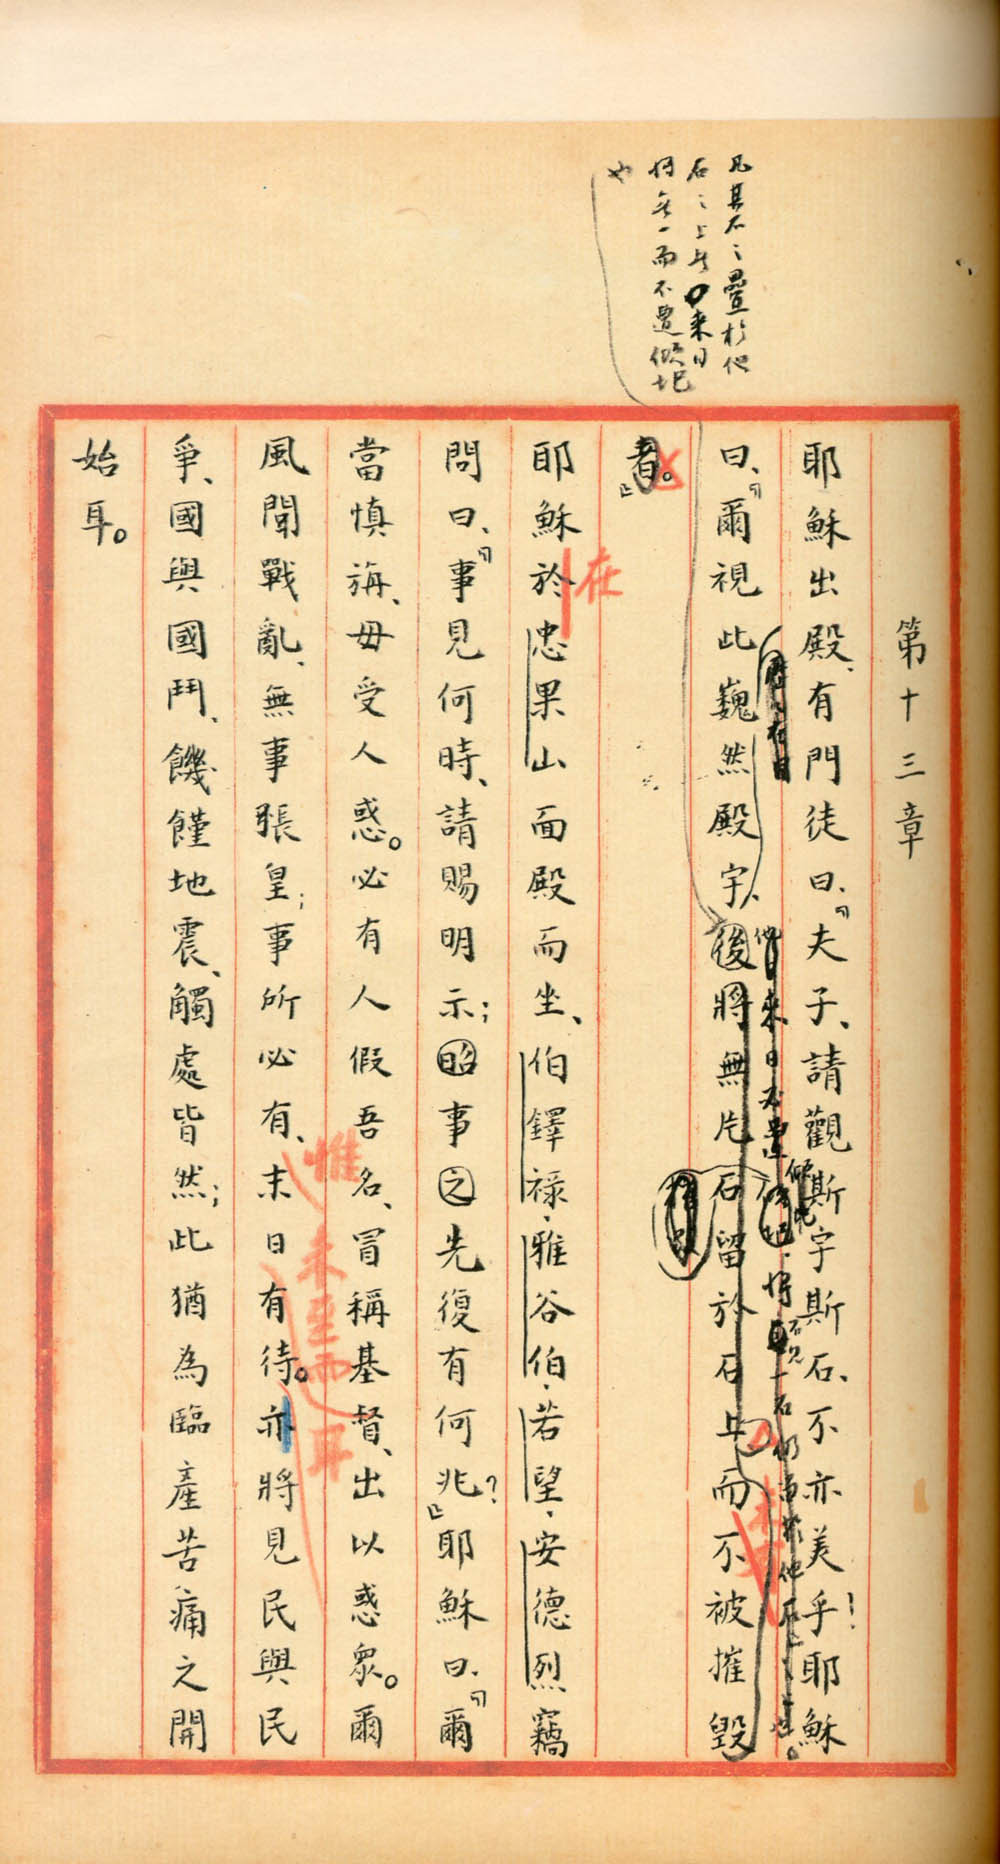 凡其石之疊於他
石之上者來日
將無一而不遭傾圮
也
第十三章
耶穌出殿、有門徒曰、「夫子、請觀斯宇斯石、不亦美乎！耶穌
曰、「爾視此巍然殿宇、後將無片石留於石上而不被摧毀
者。」
在
耶穌於忠果山面殿而坐、伯鐸祿、雅谷伯、若望、安德烈竊
問曰、「事見何時、請賜明示；昭事之先復有何兆？」耶穌曰、「爾
當慎旃、毋受人惑。必有人假吾名、冒稱基督、出以惑眾。爾
惟
未至而
耳
風聞戰亂、無事張皇；事所必有、末日有待。亦將見民與民
爭、國與國鬥、饑饉地震、觸處皆然；此猶為臨產苦痛之開
始耳。